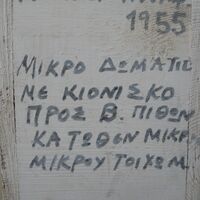 1955
ΜΙΚΡΟ ΔΩΜΑΤΙΟ
ΜΕ ΚΙΟΝΙΣΚΟ
ΠΡΟΣ Β. ΠΙΘΩΝ
ΚΑΤΩΘΕΝ ΜΙΚΡ
ΜΙΚΡΟΥ ΤΟΙΧΩΜ